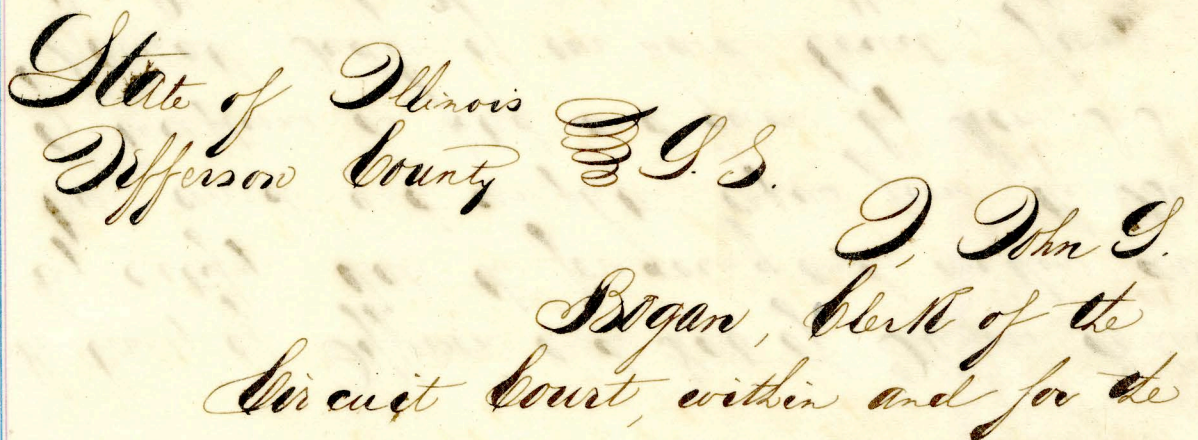 State of Illinois
Jefferson County S.S.
I, John S.
Bogan, Clerk of the
Circuit Court, within and for the